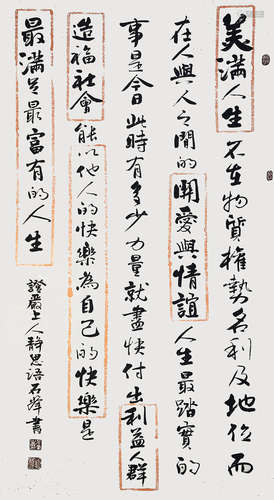 美滿人生不在物質權勢名利及地位而
在人與人之間的關愛與情誼人生最踏實的
事是今日此時有多少力量就盡快付出利益人群
造福社會能以他人的快樂為自己的快樂是
最滿足最富有的人生
證嚴上人靜思語石峰書